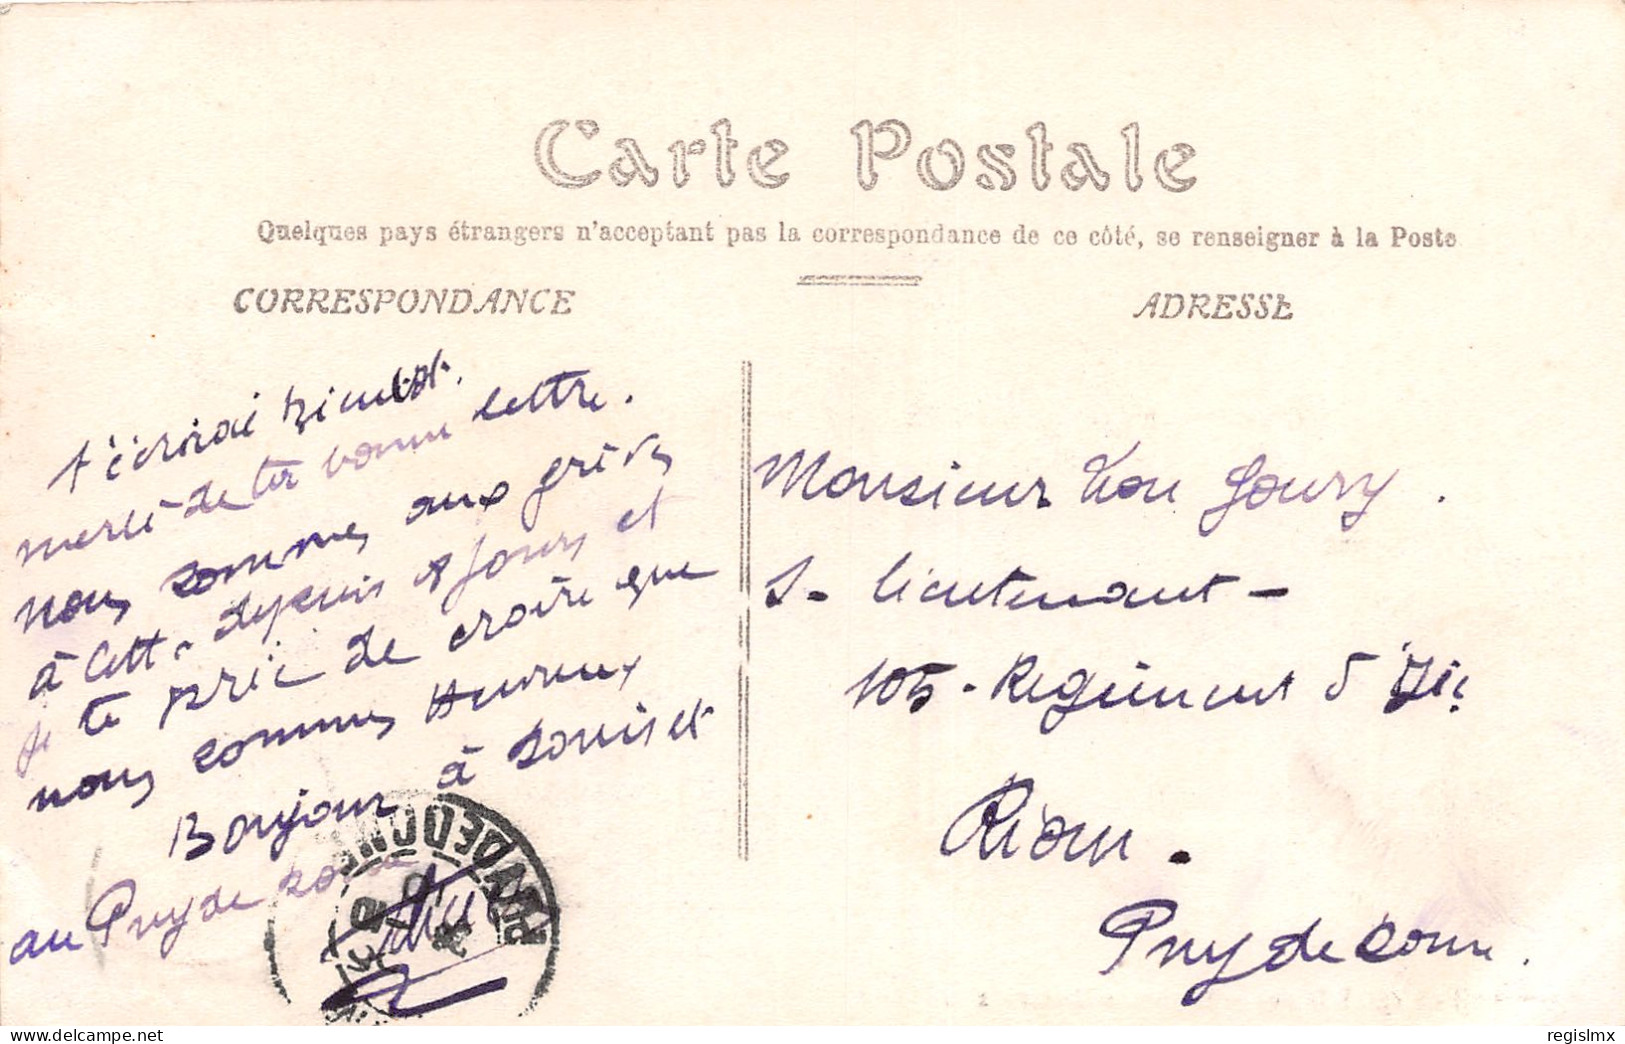 Carte Postale
Quelques pays étrangers n'acceptant pas la correspondance de ce côté, se renseigner à la Poste
CORRESPONDANCE
t'écrirai bientôt.
merci de ta bonne lettre.
nous sommes aux grèves
à Cett. depuis 8 jours et
je te prie de croire que
nous sommes Heureux
Bonjour à Louis et
au Puy de
ADRESSE
Monsieur Léon Joury.
S- lieutenant-
105- Regiment d'Ie
Riom.
Puy de Dome.
PUY DE DOME
regislmx